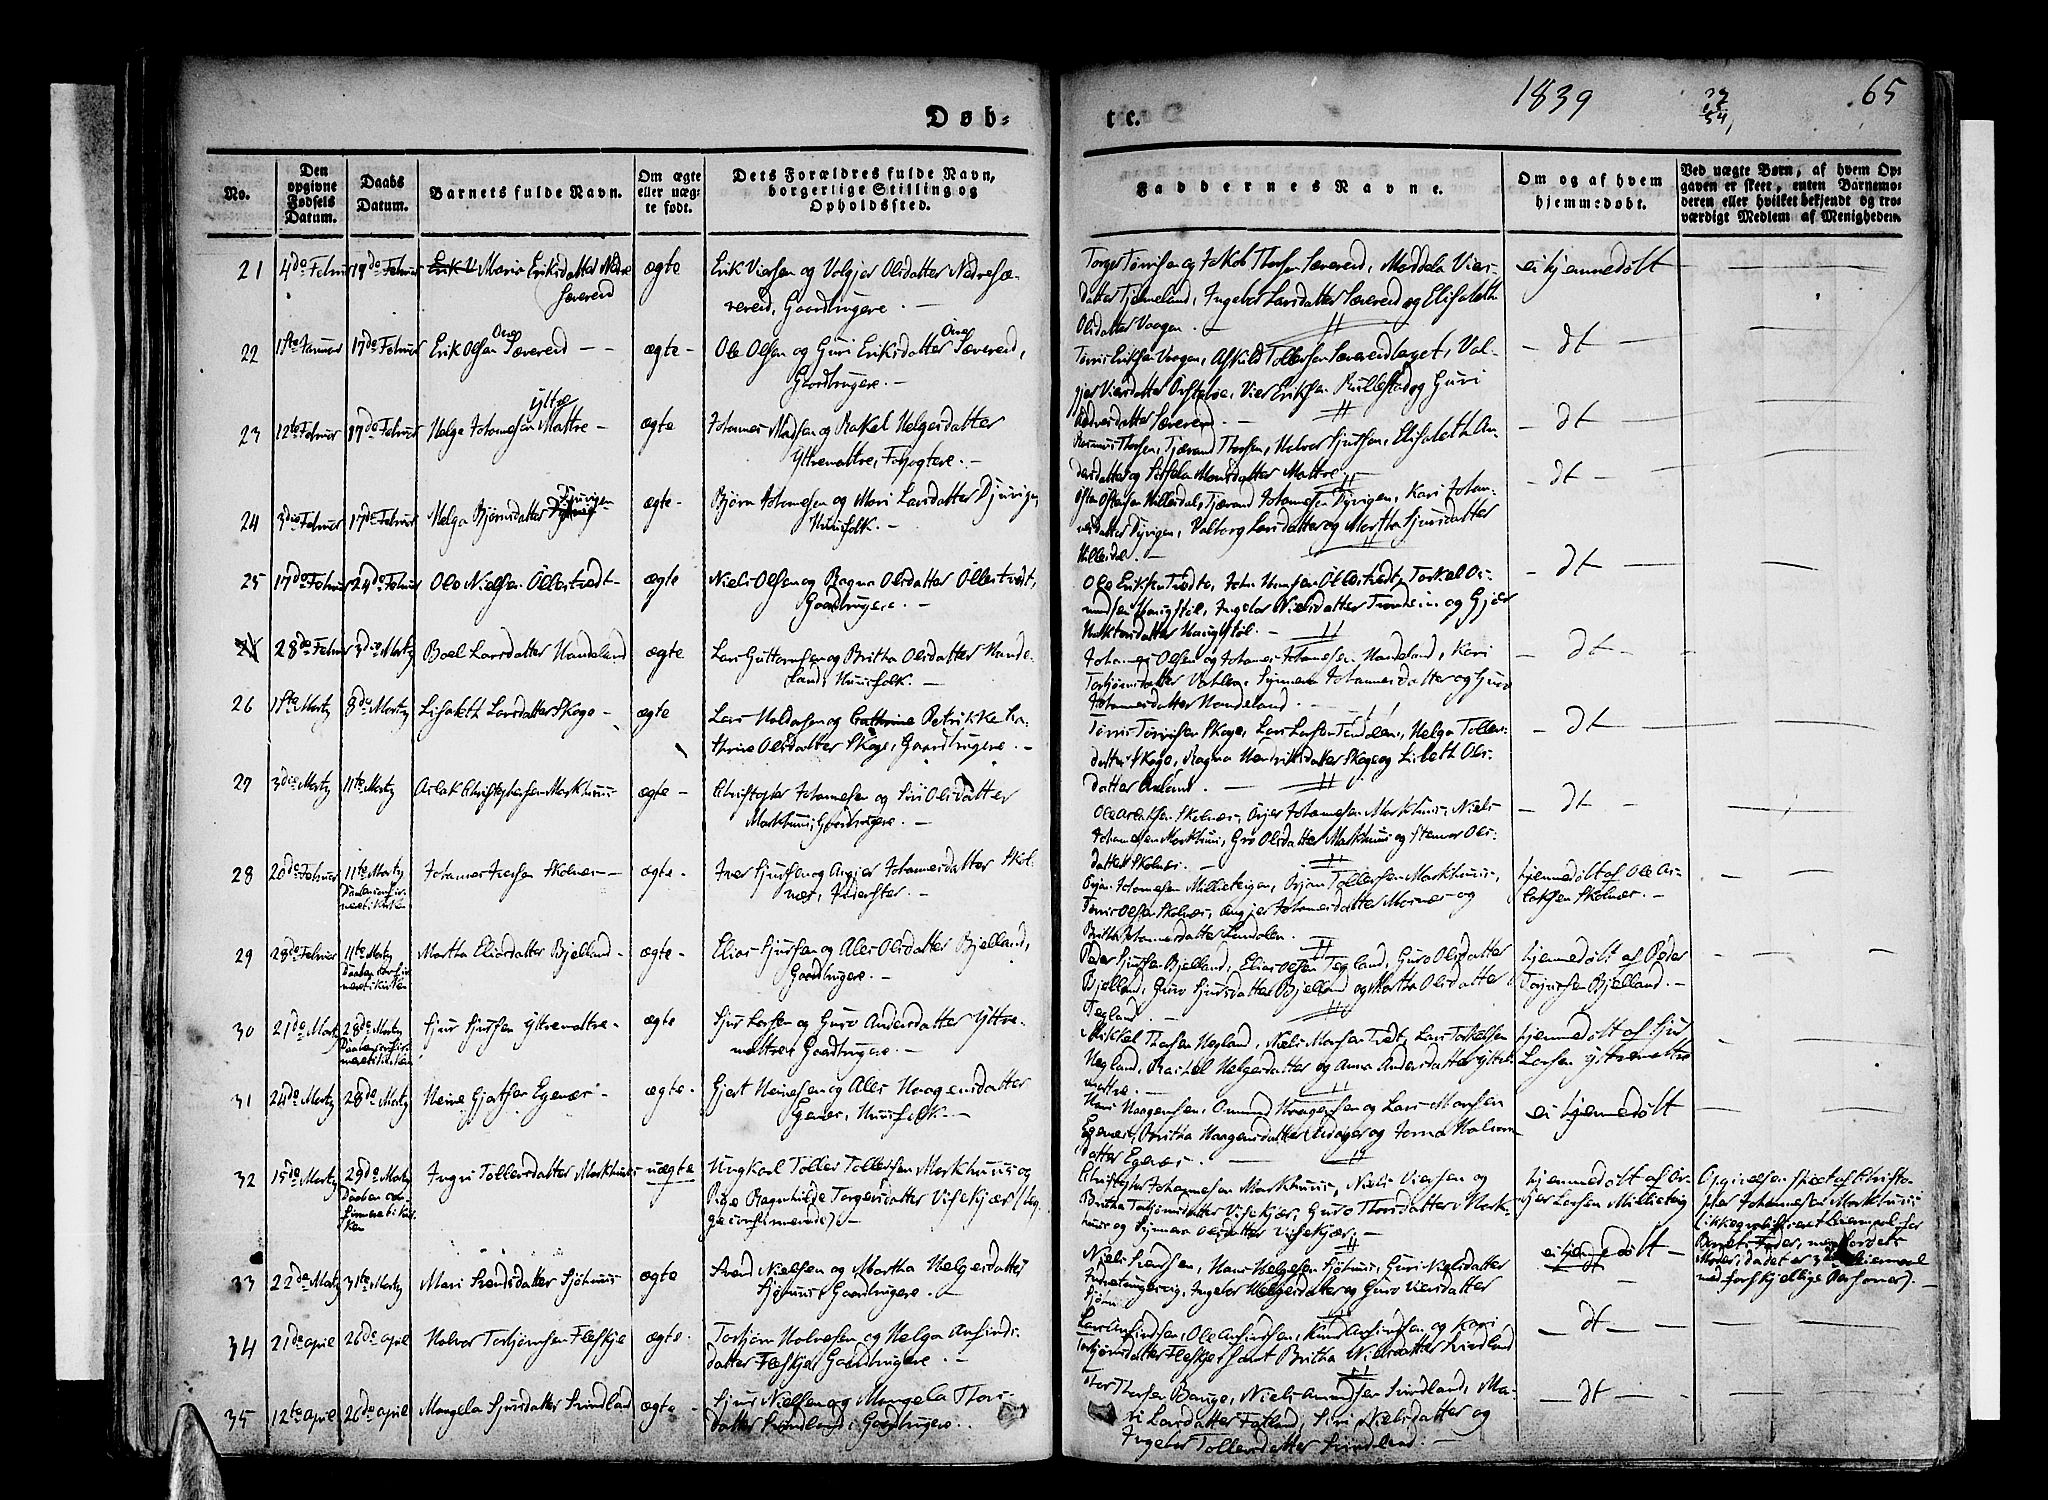 Døb-
te.
1839
65
No.
Den opgivne Fødsels Datum.
Daabs Datum.
Barnets fulde Navn.
Om ægte eller uæg-
te født.
Dets Forældres fulde Navn, borgerlige Stilling og Opholdssted.
Faddernes Navne.
Om og af hvem hjemmedøbt.
Ved uægte Børn, af hvem Op-
gaven er skeet, enten Barnemo-
deren eller hvilket bekjendt og tro-
værdigt Medlem af Menigheden.
21 4de Februar 19de Februar Maria Eriksdatter Nedre ægte Erik Viersen og Valgjer Olsdatter Nedresæ-
Sævereid
vereid, Gaardbrugere. —
Torger Tørrisen og Jakob Thorsen Sævereid, Maddela Viers-
datter Tjerneland, Ingebor Larsdatter Sævereid og Elisabeth
Olsdatter Vaagen. —
ei hjemmedøbt
22 1ste Januar 17de Februar Erik Olsen Øvre Sævereid — ægte - Ole Olsen og Guri Eriksdatter Øvre Sævereid,
Gaardbrugere. —
Tørris Eriksen Vaagen, Tollefsen Sævereid, Val-
gjer Viersdatter, Vier Eriksen Rullestad og Guri
datter Sævereid. —
— dt —
23 12te Februar 17de Februar Helge Johannesen Yttre Mattre - ægte Johannes Madsen og Rakel Helgesdatter
Yttremattre,
Rasmus Thorsen, Tjærand Thorsen, Halvor Sjursen, Elisabeth An-
dersdatter og Sissela Monsdatter Mattre. —
— dt —
24 3die Februar 17de Februar Helga Bjørnsdatter Djuvigen ægte - Bjørn Johannesen og Mari Larsdatter Djuvigen,
Huusfolk. —
Østen Østensen Hillesdal, Tjærand Johannesen Dyvigen, Kari Johan-
nesdatter Dyvigen, Valborg Larsdatter og Martha Sjursdatter
Hillesdal. —
— dt —
25 17de Februar 24de Februar Ole Nielsen Øllestvedt - ægte Niels Olsen og Ragna Olsdatter Øllestvedt,
Gaardbrugere. —
Ole Eriksen Tvedte, John Hansen Øllestvedt, Torkel Os-
mundsen Haugstøl, Ingebor Nielsdatter og Gjær
datter Haugstøl. —
— dt —
28de Februar 3die Martz Boel Larsdatter Handeland ægte Lars Guttormsen og Britha Olsdatter Hande-
land, Huusfolk. —
Johannes Olsen og Johannes Johannesen Handeland, Kari
Torbjørnsdatter, Synneva Johannesdatter og Guro
Johannesdatter Handeland. —
— dt —
26 1ste Martz 8de Martz Lisabeth Larsdatter Skoge - ægte Lars Haldorsen og Cathrine Petrikke Ca-
thrine Olsdatter Skoge, Gaardbrugere. —
Tørris Tørrisen Skoge, Lars Larsen, Helga Tollevs-
datter Skoge, Ragna Henriksdatter Skoge og Lisbeth Ols-
datter. —
— dt —
27 3die Martz 11te Martz Aslak Christophersen Markhuus ægte - Christopher Johannesen og Siri Olsdatter
Markhuus, Gaardbrugere. —
Ole Aslaksen Skolnes, Johannesen Markhuus, Niels
Johannesen Markhuus, Gro Olsdatter Markhuus og Steenvor Ols-
datter Skolnes. —
— dt —
28 20de Februar 11te Martz Johannes Iversen Skolnes — ægte - Iver Sjursen og Angjer Johannesdatter Skol-
nes, Inderster. —
Daaben confir-
meret i Kirken
Johannesen Millieteigen, Tollefsen Markhuus,
Tørris Olsen Skolnes, Angjer Johannesdatter og
Britha Johannesdatter. —
hjemmedøbt af Ole As-
laksen Skolnes. —
29 28de Februar 11te Martz Martha Eliasdatter Bjelland - ægte - Elias Sjursen og Ales Olsdatter Bjelland,
Gaardbrugere. —
Daaben confir-
meret i Kirken
Peder Sjursen Bjelland, Elias Olsen Tegland, Guro Olsdatter
Bjelland, Guro Sjursdatter Bjelland og Martha Olsdatter
Tegland. —
hjemmedøbt af Peder
Bjelland. —
30 21de Martz 28de Martz Sjur Sjursen Yttremattre - ægte Sjur Larsen og Guro Andersdatter Yttre-
mattre, Gaardbrugere. —
Daaben confir-
meret i Kirken
Mikkel Thorsen Hegland, Niels Monsen Tvedt, Lars Torkelsen
Hegland, Rachel Helgesdatter og Anna Andersdatter Yttre-
mattre. —
hjemmedøbt af Sjur
Larsen Yttremattre
31 24de Martz 28de Martz Heine Gjertsen Egenæs - ægte - Gjert Heinesen og Ales Haagensdatter
Egenes, Huusfolk. —
Hans Haagensen, Omund Haagensen og Lars Monsen
Egenæs, Britha Haagensdatter og
datter Egenæs. —
ei hjemmedøbt
32 15de Martz 29de Martz Ingri Tollevsdatter Markhuus uægte Ungkarl Tollev Tollevsen Markhuus og
Pige Ragnhilde Torgersdatter Visekjær (beg-
ge confirmerede). —
Daaben con-
firmeret i Kir-
ken
Christopher Johannesen Markhuus, Niels Viersen og
Britha Torbjørnsdatter Visekjær, Guro Thorsdatter Mark-
huus og Synneva Olsdatter Visekjær. —
hjemmedøbt af
Larsen Millieteig
Opgivelsen skeet af Christo-
pher Johannesen Markhuus
for
Barnets Fader, men
Moder, da det er 3die Leiermaal
med forskjellige Personer). —
33 22de Martz 31te Martz Mari Svendsdatter Sjøhuus ægte Svend Nielsen og Martha Helgesdatter
Sjøhuus, Gaardbrugere. —
Niels Svendsen, Hans Helgesen Sjøhuus, Guri Nielsdatter
Ingebor Helgesdatter og Guro Viersdatter
ei hjemmedøbt —
34 21de April 26de April Halvor Torbjørnsen Fleskje ægte - Torbjørn Halvorsen og Helga Arfinds-
datter Fleskje, Gaardbrugere. —
Lars Arfindsen, Ole Arfindsen, Knud Arfindsen, og Kari
Torbjørnsdatter Fleskje samt Britha Nielsdatter Svindland
— dt —
35 12te April 26de April Mangela Sjursdatter Svindland ægte - Sjur Nielsen og Mangela Thors-
datter Svindland, Gaardbrugere.
Thor Thorsen Bauge, Niels Svindland, Ma-
ri Larsdatter Fatland, Siri Nielsdatter og
Ingebor Tollevsdatter Svindland. —
— dt —